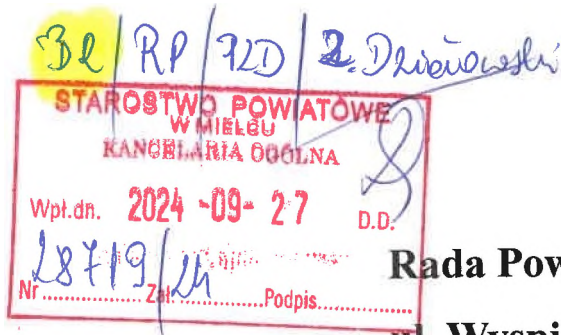 BR / RP / PZD / Z. Dziekoński
STAROSTWO POWIATOWE
W MIELCU
KANCELARIA OGÓLNA
Wpł.dn. 2024 -09- 27 D.D.
28719/24
Nr............Zał............Podpis............
Rada Pow
ul. Wyspi